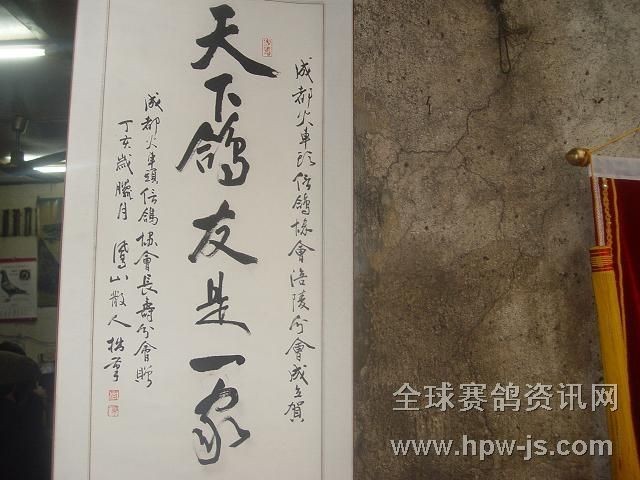 成都火車頭信鴿協會涪陵分會成立賀
天下鴿友是一家
成都火車頭信鴿協會長壽分會贈
丁亥歲臘月 山散人拙筆
全球赛鸽资讯网
www.hpw-js.com